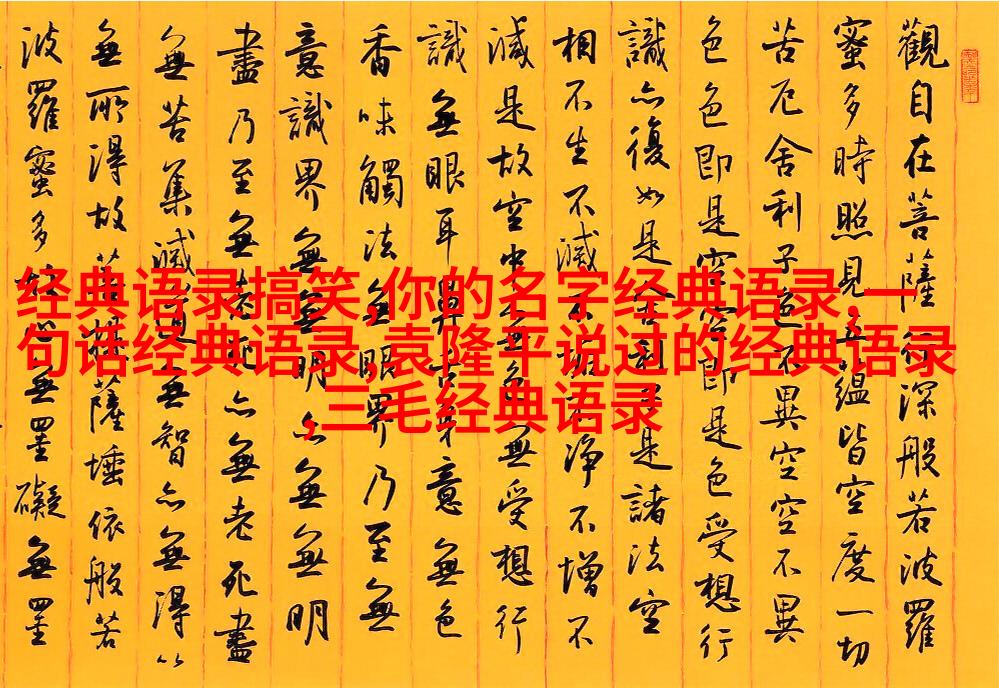 觀自在菩薩行深般若波羅
蜜多時照見五蘊皆空度一切
苦厄舍利子色不異空空不異
色色即是空空即是色受想行
識亦復如是舍利子是諸法空
相不生不滅不垢不淨不增不
減是故空中無色無受想行
識無眼耳鼻舌身意無色
香味觸法無眼界乃至無
意識界無無明亦無無明
盡乃至無老死亦無老死盡
無苦集滅道無智亦無得以
無所得故菩提薩埵依般若
波羅蜜多故心無罣礙無罣
经典语录搞笑,你的名字经典语录,一
句话经典语录,袁隆平说过的经典语录
,三毛经典语录